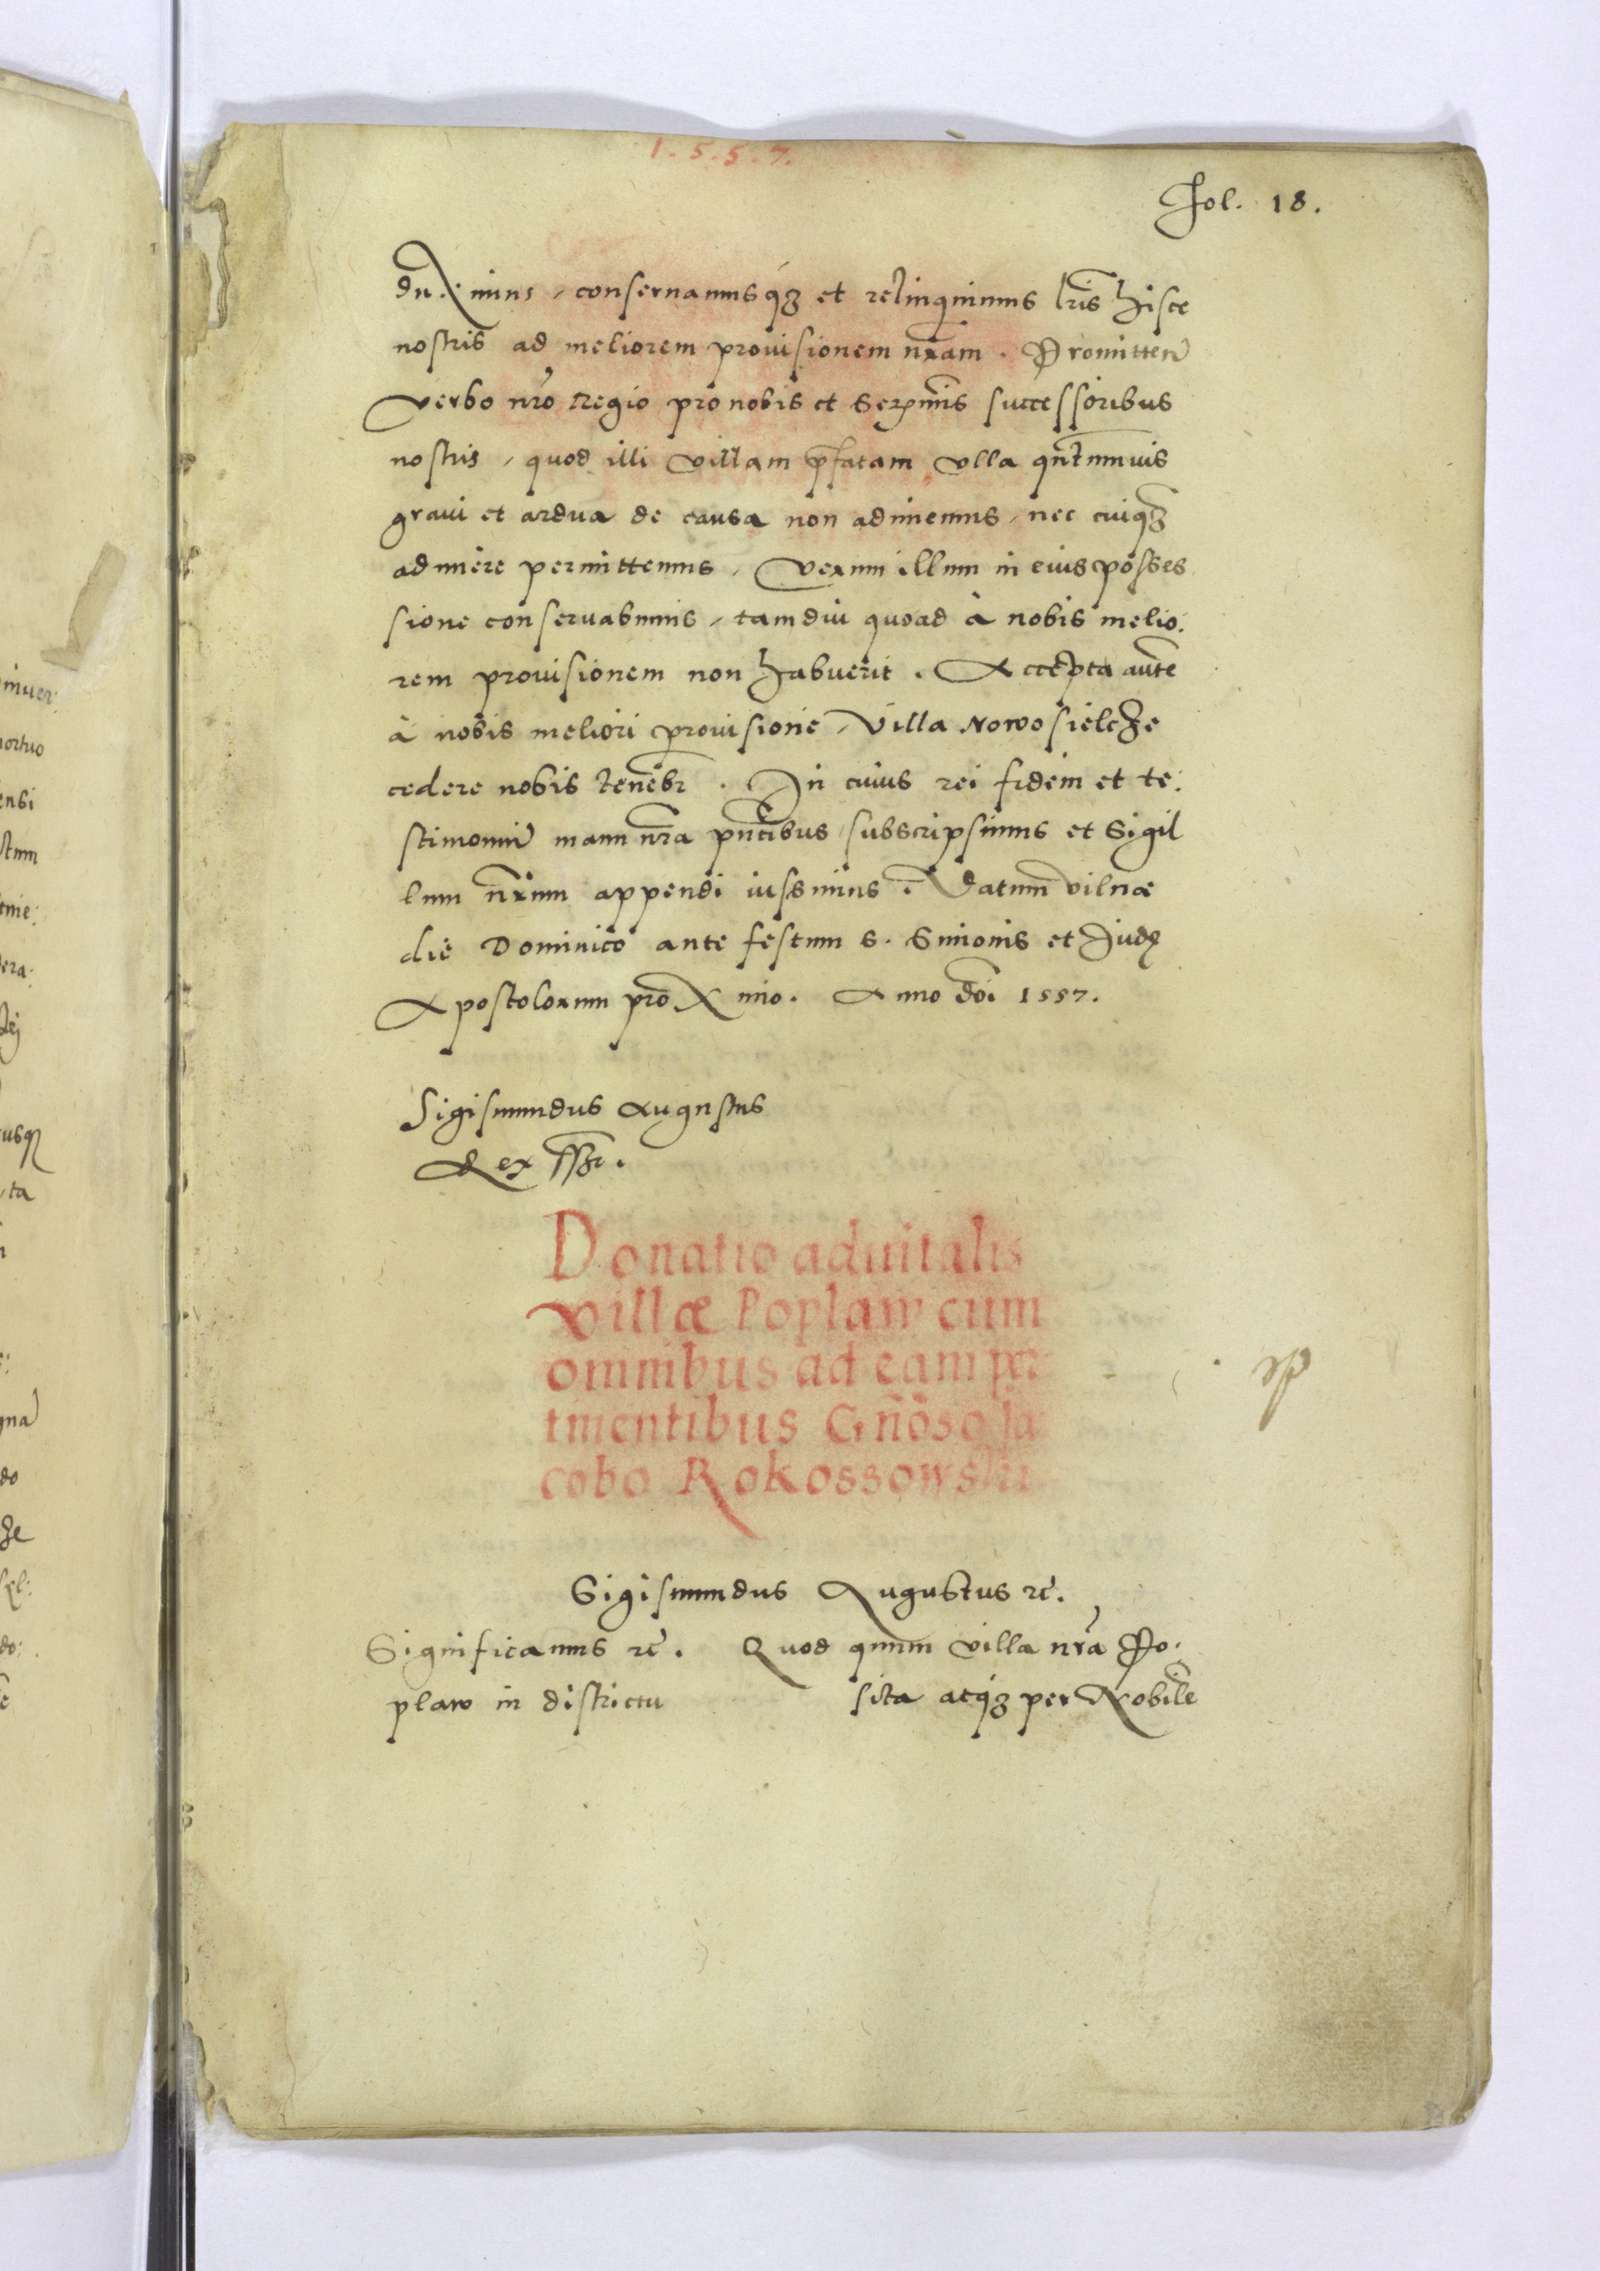 1.5.5.7.
Fol. 18.
duximus, conservamusq3 et relinquimus lr̃is hisce
nostris ad meliorem provisionem nr̃am. Promitten̄
Verbo nr̃o Regio pro nobis et Ser̃mis successoribus
nostris, quod illi villam p̃fatam ulla qñtumvis
gravi et ardua de causa non adimemus, nec cuiq3
adimere permittemus, Verum illum in eius posses
sione conservabimus, tamdiu quoad à nobis melio:
rem provisionem non habuerit. Accepta autē
à nobis meliori provisione, Villa Nowosielcze
cedere nobis tenebr̃. In cuius rei fidem et te:
stimoniū manu nr̃a pñtibus subscripsimus et Sigil
lum nr̃um appendi iussimus. Datum Vilnæ
die Dominico ante festum S. Simonis et Judę
Apostolorum proximo. Anno Dōi 1557.
Sigismundus Augustus
Rex sst.
Donatio advitalis
villæ Poplaw cum
omnibus ad eam per
tinentibus Gñoso Ja
cobo Rokossowski
Sigismundus Augustus rē.
Significamus rē. Quod quum villa nr̃a Po:
plaw in districtu sita atq3 per Nobilē